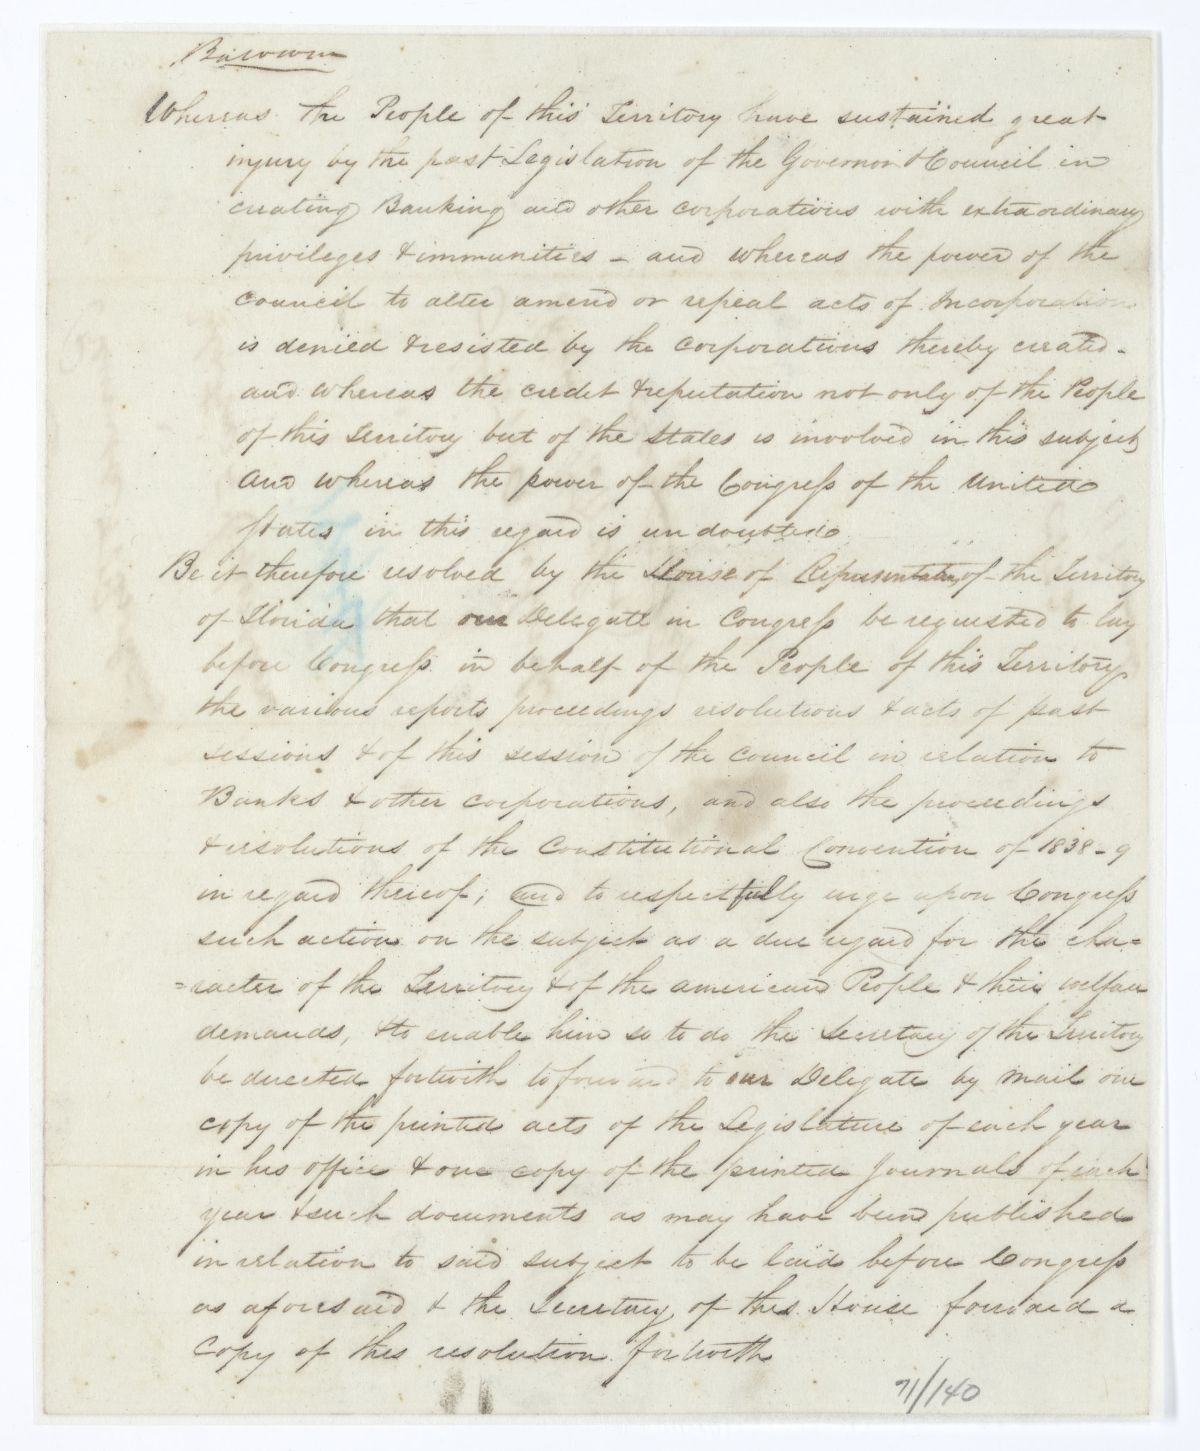 Whereas the People of this Territory have sustained great
injury by the past Legislation of the Governor & Council in
creating Banking and other corporations with extraordinary
privileges & immunities – and whereas the power of the
Council to alter amend or repeal acts of Incorporation
is denied & resisted by the corporations thereby created –
and whereas the credit & reputation not only of the People
of this Territory but of the States is involved in this subject
and whereas the power of the Congress of the United
States in this regard is undoubted
Be it therefore resolved by the House of Representatives of the Territory
of Florida that our Delegate in Congress be requested to lay
before Congress in behalf of the People of this Territory
the various reports proceedings resolutions & acts of past
sessions & of this session of the Council in relation to
Banks & other corporations, and also the proceedings
& resolutions of the Constitutional Convention of 1838-9
in regard thereof; and to respectfully urge upon Congress
such action on the subject as a due regard for the cha=
=racter of the Territory & of the american People & their welfare
demands, & to enable him so to do the Secretary of the Territory
be directed forthwith to forward to our Delegate by mail one
copy of the printed acts of the Legislature of each year
in his office & one copy of the printed Journals of each
year & such documents as may have been published
in relation to said subject to be laid before Congress
as aforesaid & the Secretary of this House forward a
Copy of this resolution forthwith
71/140